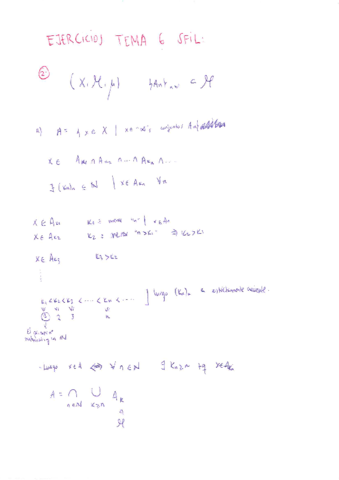 EJERCICIOS TEMA 6 SFIL.
2
(X, M, μ) {An}n∈N ⊂ M
a) A = { x ∈ X | x ∈ conjuntos An }
x ∈ Ak1 ∩ Ak2 ∩ ... ∩ Akn ∩ ...
∃ (kn)n ⊆ N | x ∈ Akn ∀n
x ∈ Ak1 k1 = "n" | x ∈ An
x ∈ Ak2 k2 = "n > k1" ⇒ k2 > k1
x ∈ Ak3 k3 > k2
k1 < k2 < k3 < ... < kn < ... ] luego (kn)n es estrictamente creciente.
1 2 3 n
El primer en N
- Luego x ∈ A ⟺ ∀ n ∈ N ∃ k ≥ n tq x ∈ Ak
A = ⋂ ⋃ Ak
n∈N k≥n
∩
M